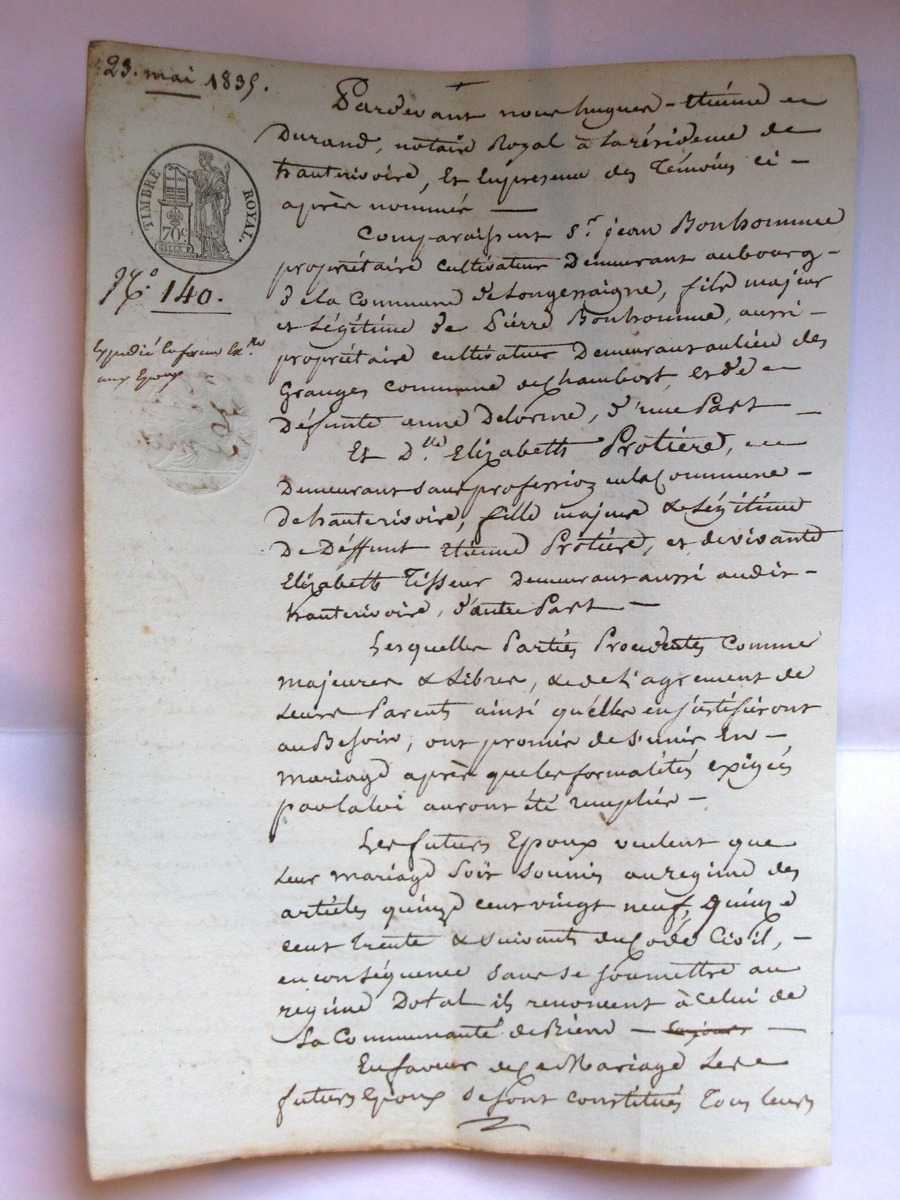 23. mai 1835.
Pardevant nous hugues-étienne
Durand, notaire Royal à la résidence de
hauterivoire, Et En présence des Témoins ci-
après nommés —
TIMBRE ROYAL
70 c.
N.° 140.
Expédié En forme Ex.re
aux Epoux
Comparaissent S.r jean Bonhomme
propriétaire cultivateur Demeurant au bourg-
de la Commune de Longessaigne, fils majeur
et Légitime de Pierre Bonhomme, aussi-
propriétaire cultivateur Demeurant au lieu des
Granges commune de Chambost, et de
Défunte anne Delorme, d'une Part —
Et D.lle Elizabeth Protière,
Demeurant sans profession en la Commune-
de hauterivoire, fille majeure & Légitime
De Déffunt Etienne Protière, et de vivante
Elizabeth Tisseur Demeurant aussi audit-
hauterivoire, d'autre Part —
Lesquelles Parties Procedentes Comme
majeures & Libres, & de l'agrement de
Leurs Parents ainsi qu'elles en justifieront
au Besoin, ont promis de s'unir En-
mariage après que les formalités exigées
par la loi auront été remplies-
Les futurs Epoux veulent que
Leur mariage soit soumis au regime des
articles quinze cent vingt neuf, quinze
cent trente & suivants du Code Civil, -
en conséquence sans se soumettre au
regime Dotal ils renoncent à Celui de
La Communauté de Biens — —
En faveur de ce Mariage Les
futurs Epoux se sont constitués Tous leurs